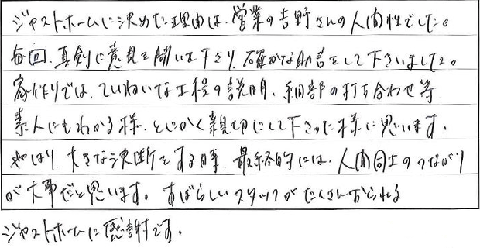 ジャストホームに決めた理由は、営業の吉野さんの人間性でした。
毎回、真剣に意見を聞いて下さり、確かな助言をして下さいました。
家作りでは、ていねいな工程の説明、細部の打ち合わせ等
素人にもわかる様、とにかく親切にして下さった様に思います。
やはり大きな決断をする時、最終的には、人間同士のつながり
が大事だと思います。すばらしいスタッフがたくさんおられる
ジャストホームに感謝です。